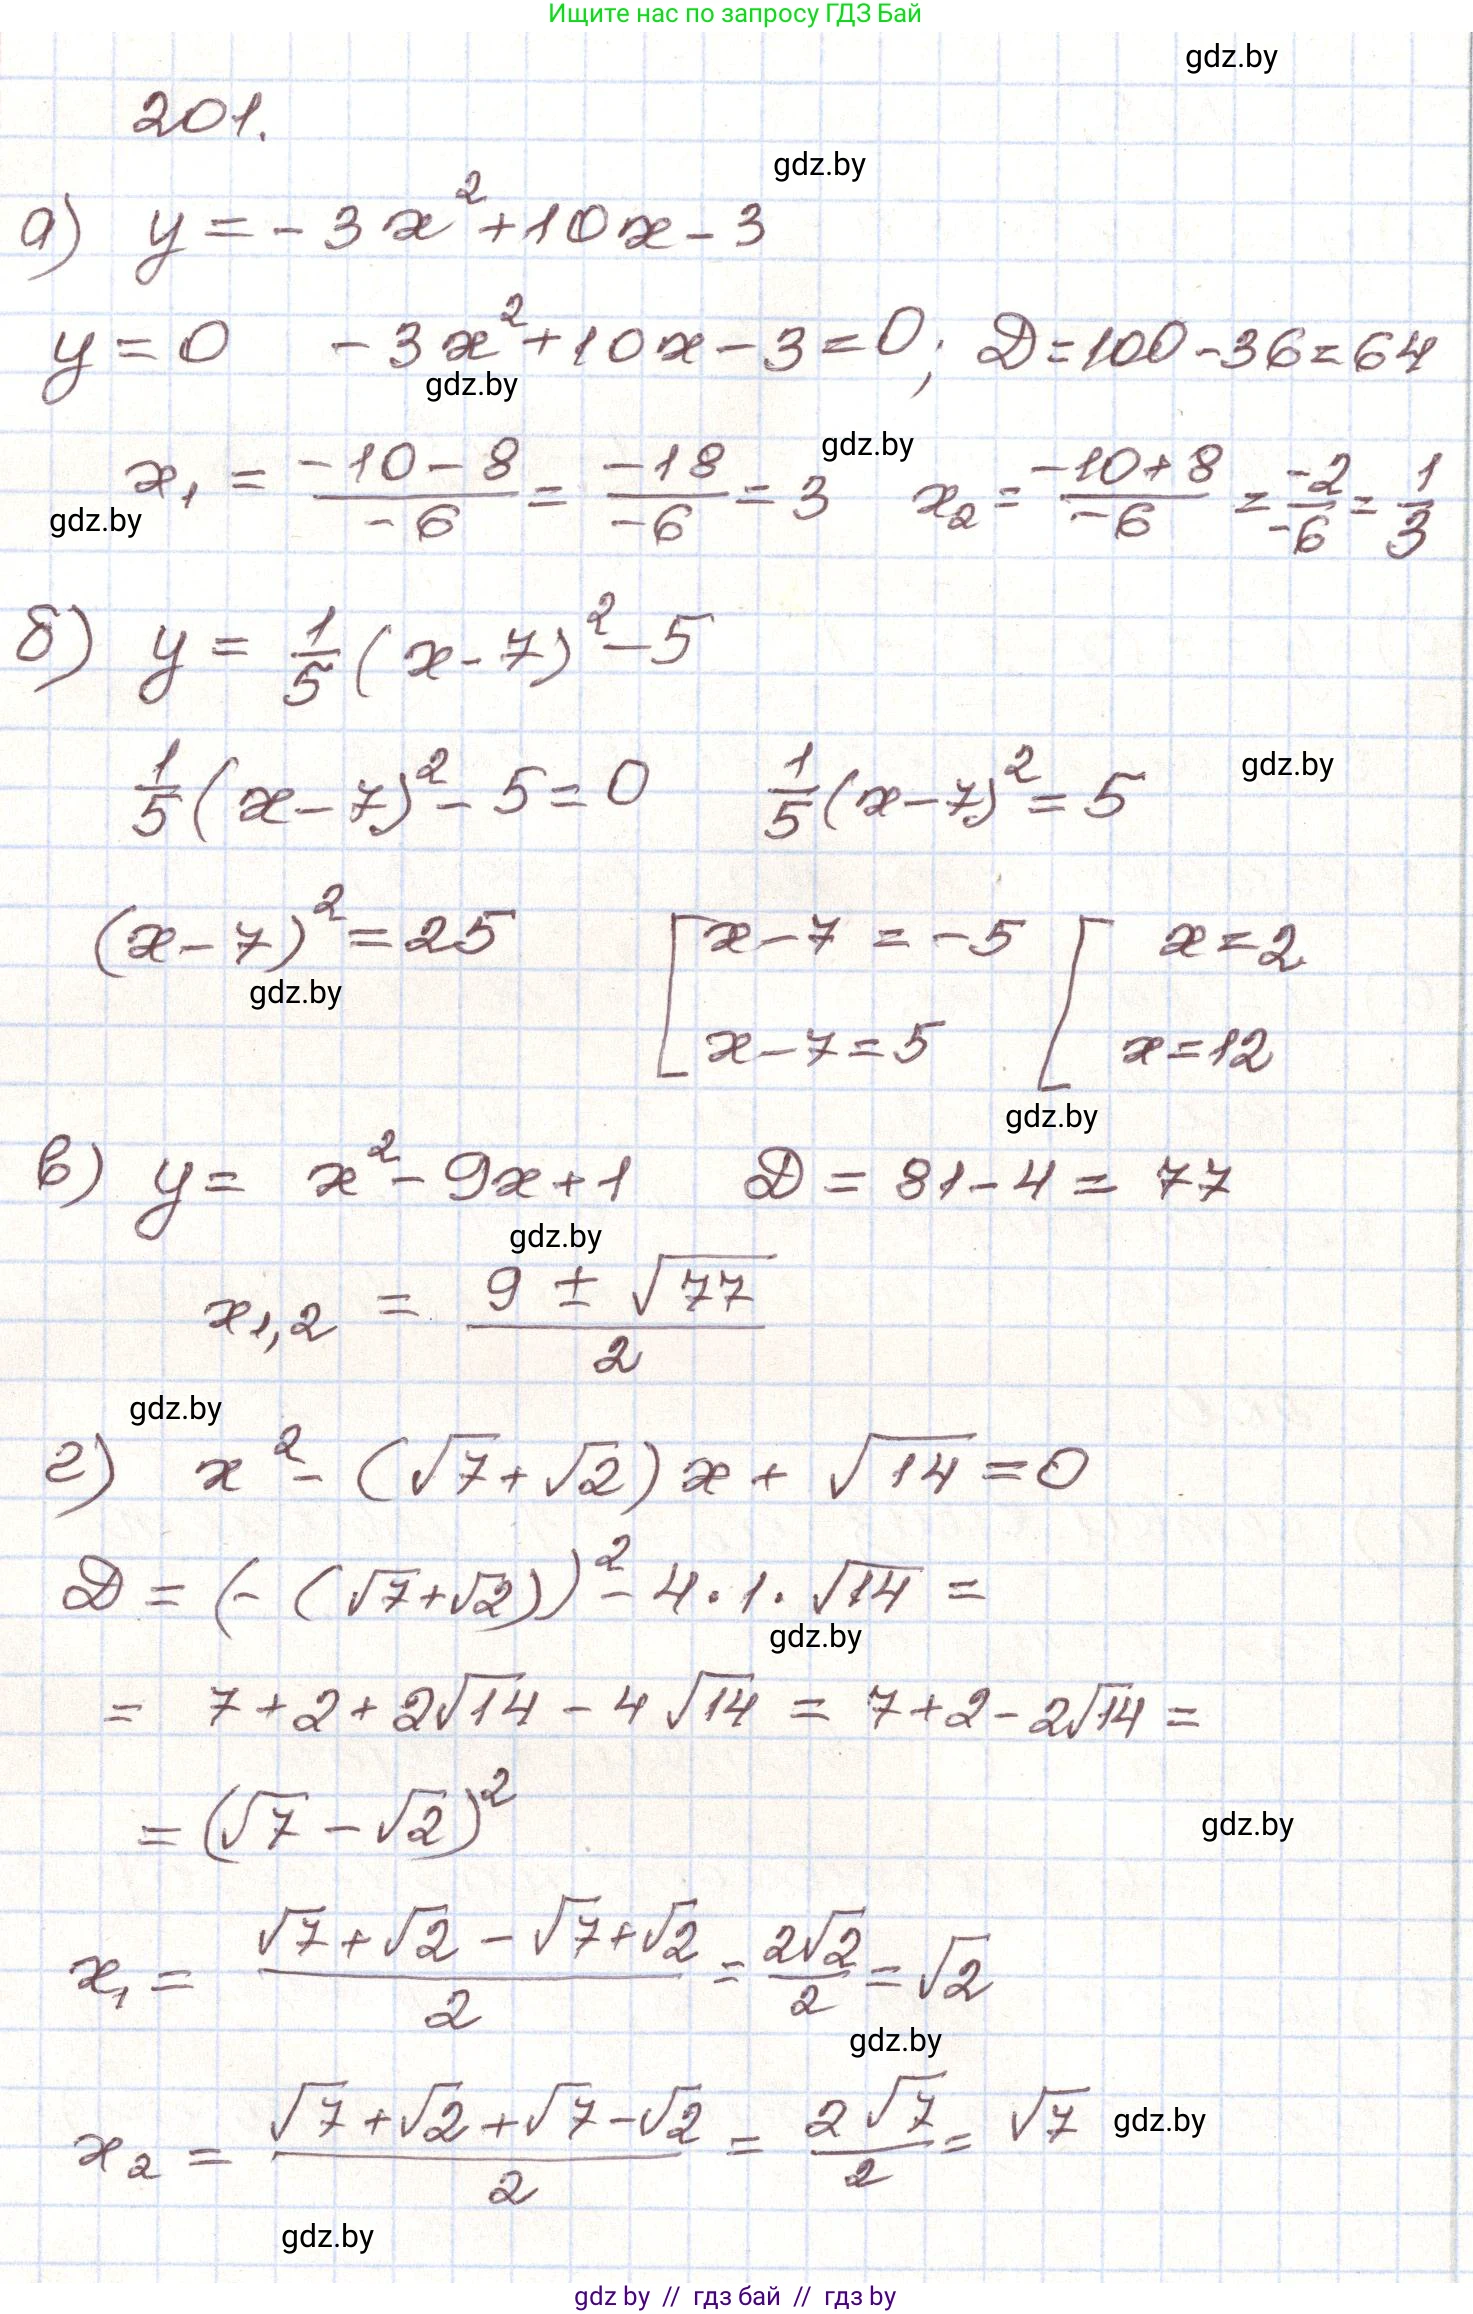 Ищите нас по запросу ГДЗ Бай
gdz.by
201.
gdz.by
а) y = -3x² + 10x - 3
y = 0   -3x² + 10x - 3 = 0; D = 100 - 36 = 64
gdz.by
gdz.by
x₁ = (-10 - 8)/(-6) = (-18)/(-6) = 3   x₂ = (-10 + 8)/(-6) = (-2)/(-6) = 1/3
gdz.by
б) y = 1/5 (x - 7)² - 5
gdz.by
1/5 (x - 7)² - 5 = 0   1/5 (x - 7)² = 5
(x - 7)² = 25   [ x - 7 = -5   [ x = 2
gdz.by
x - 7 = 5   x = 12
gdz.by
в) y = x² - 9x + 1   D = 81 - 4 = 77
gdz.by
x₁,₂ = (9 ± √77)/2
gdz.by
г) x² - (√7 + √2) x + √14 = 0
D = (-(√7 + √2))² - 4 · 1 · √14 =
gdz.by
= 7 + 2 + 2√14 - 4√14 = 7 + 2 - 2√14 =
= (√7 - √2)²
gdz.by
x₁ = (√7 + √2 - √7 + √2)/2 = 2√2/2 = √2
gdz.by
x₂ = (√7 + √2 + √7 - √2)/2 = 2√7/2 = √7
gdz.by
gdz.by
gdz by // гдз бай // гдз by